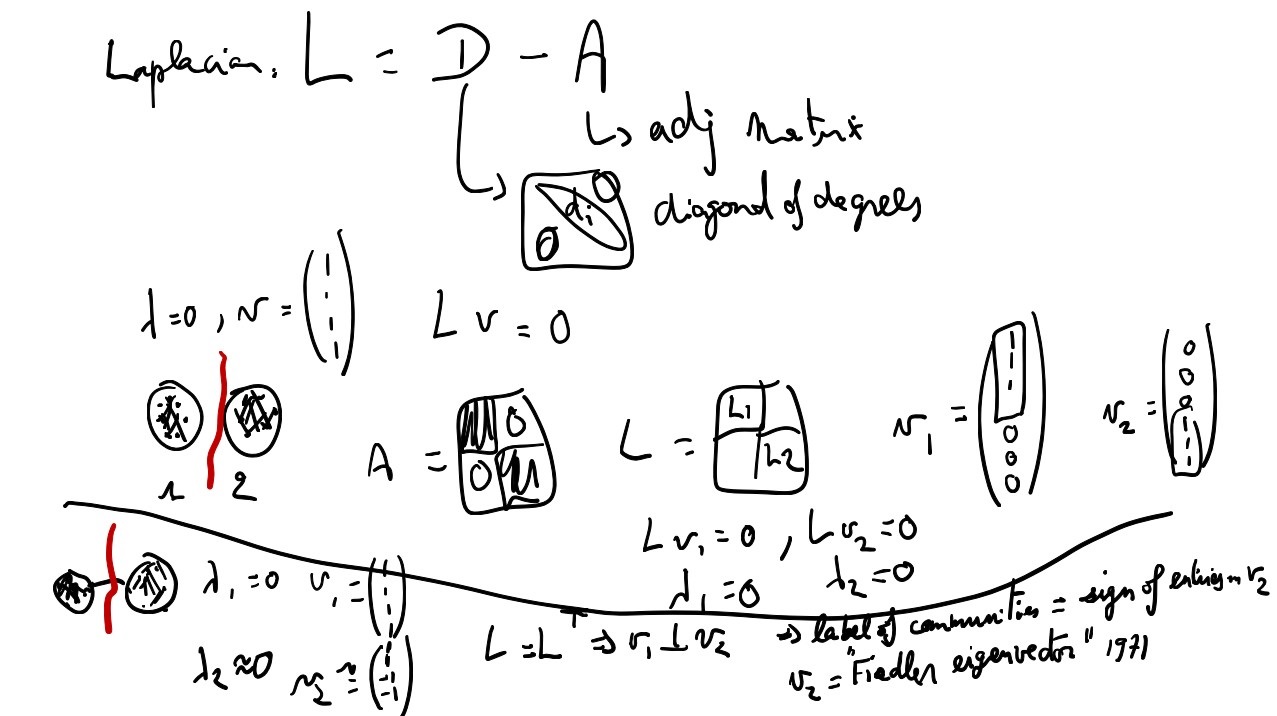 Laplacian: L = D - A
↳ adj matrix
0 di 0 diagonal of degrees
λ=0, v = (1 1 1 1) L v = 0
1 2
A = (0 0) L = (L1 L2) v1 = (1 1 1 0 0 0) v2 = (0 0 0 1 1 1)
L v1 = 0, L v2 = 0
λ1 = 0 λ2 = 0
λ1 = 0 v1 =
L = L^T ⇒ v1 ⊥ v2 ⇒ label of communities = sign of entries in v2
λ2 ≈ 0 v2 ≈
v2 = "Fiedler eigenvector" 1971